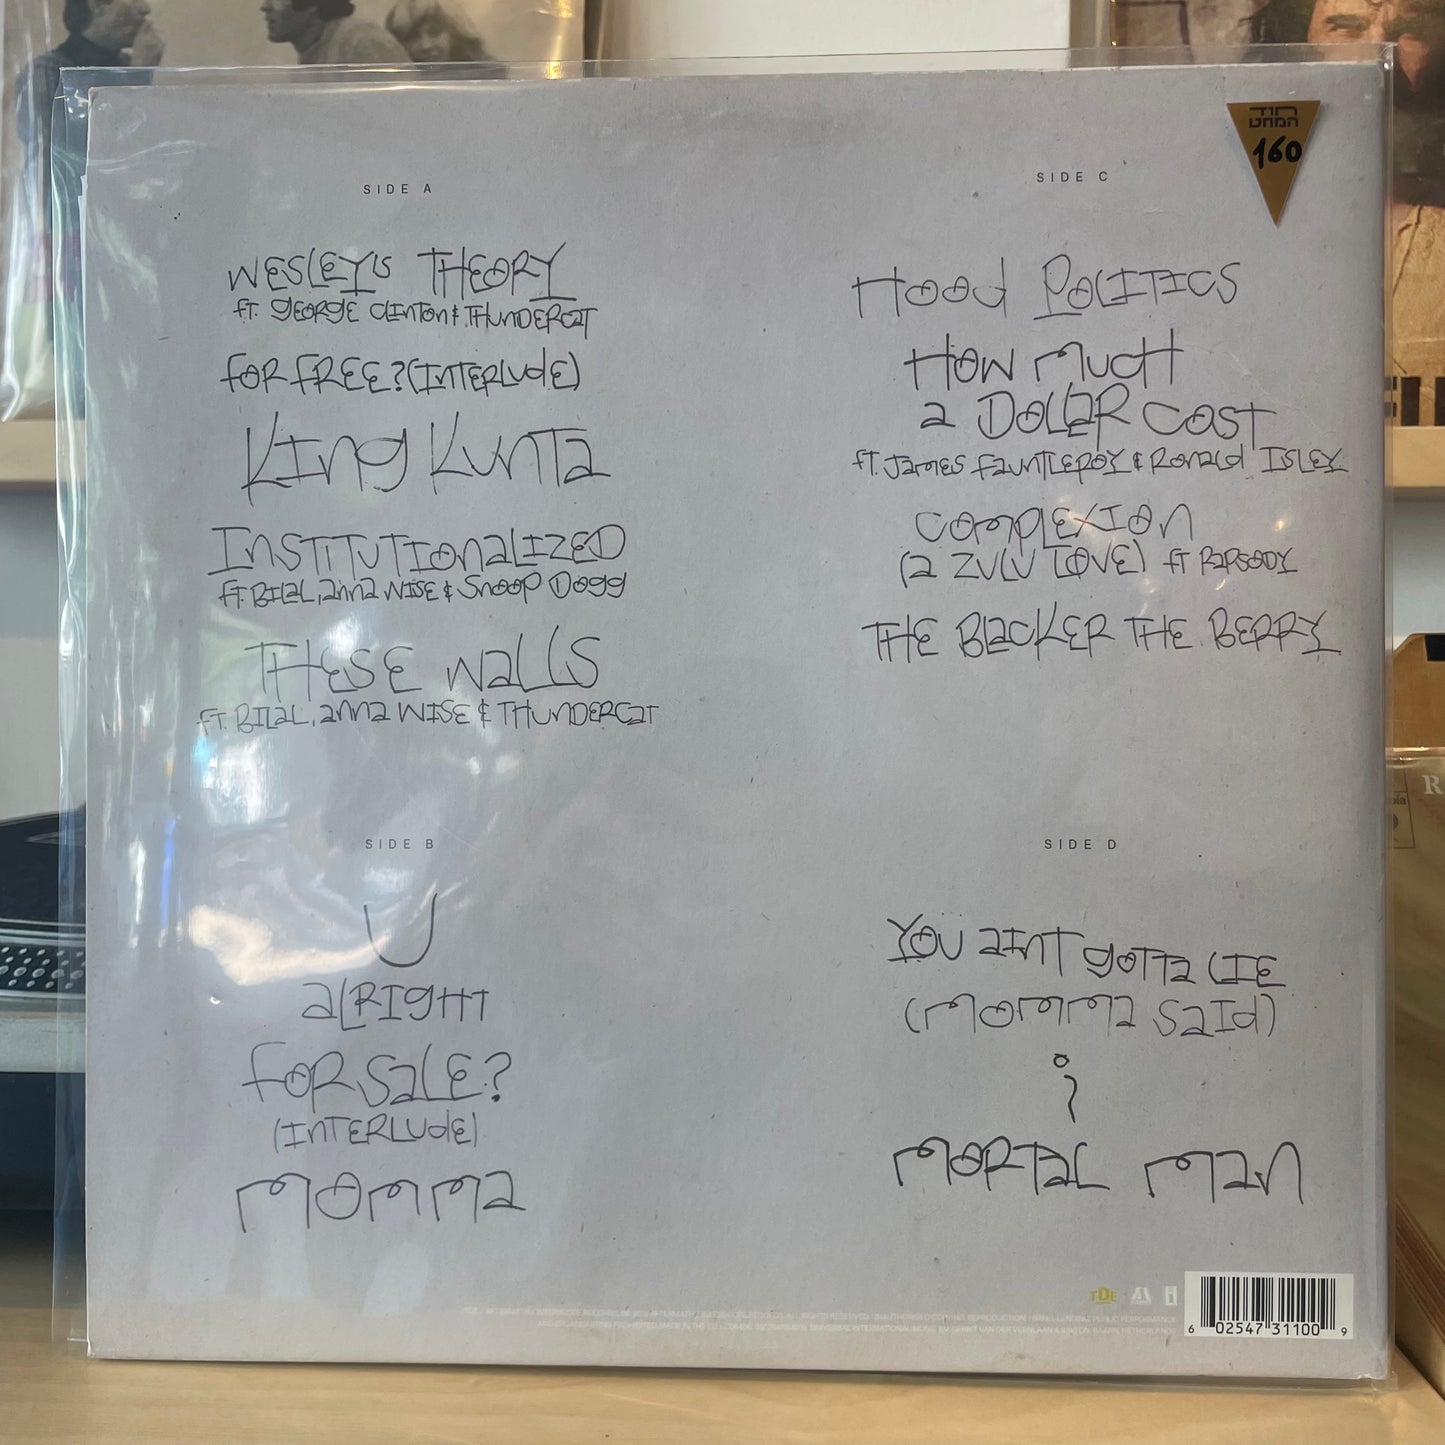 SIDE A
WESLEY'S THEORY
FT. GEORGE CLINTON & THUNDERCAT
FOR FREE? (INTERLUDE)
KING KUNTA
INSTITUTIONALIZED
FT. BILAL, ANNA WISE & SNOOP DOGG
THESE WALLS
FT. BILAL, ANNA WISE & THUNDERCAT
SIDE B
U
ALRIGHT
FOR SALE?
(INTERLUDE)
MOMMA
חוד
המחט
160
SIDE C
HOOD POLITICS
HOW MUCH
A DOLLAR COST
FT. JAMES FAUNTLEROY & RONALD ISLEY
COMPLEXION
(A ZULU LOVE) FT RAPSODY
THE BLACKER THE BERRY
SIDE D
YOU AINT GOTTA LIE
(MOMMA SAID)
i
MORTAL MAN
TDE
6 02547 31100 9
R